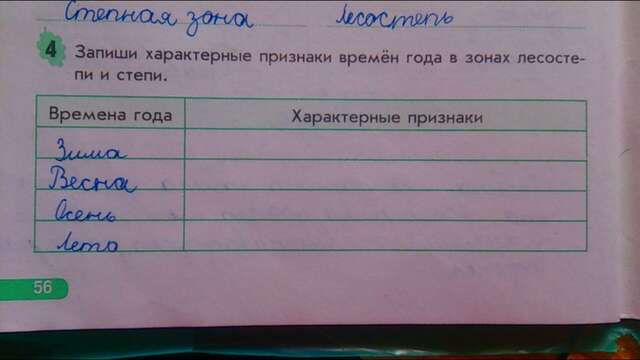 Степная зона лесостепь
4 Запиши характерные признаки времён года в зонах лесосте-
пи и степи.
Времена года Характерные признаки
Зима
Весна
Осень
Лето
56